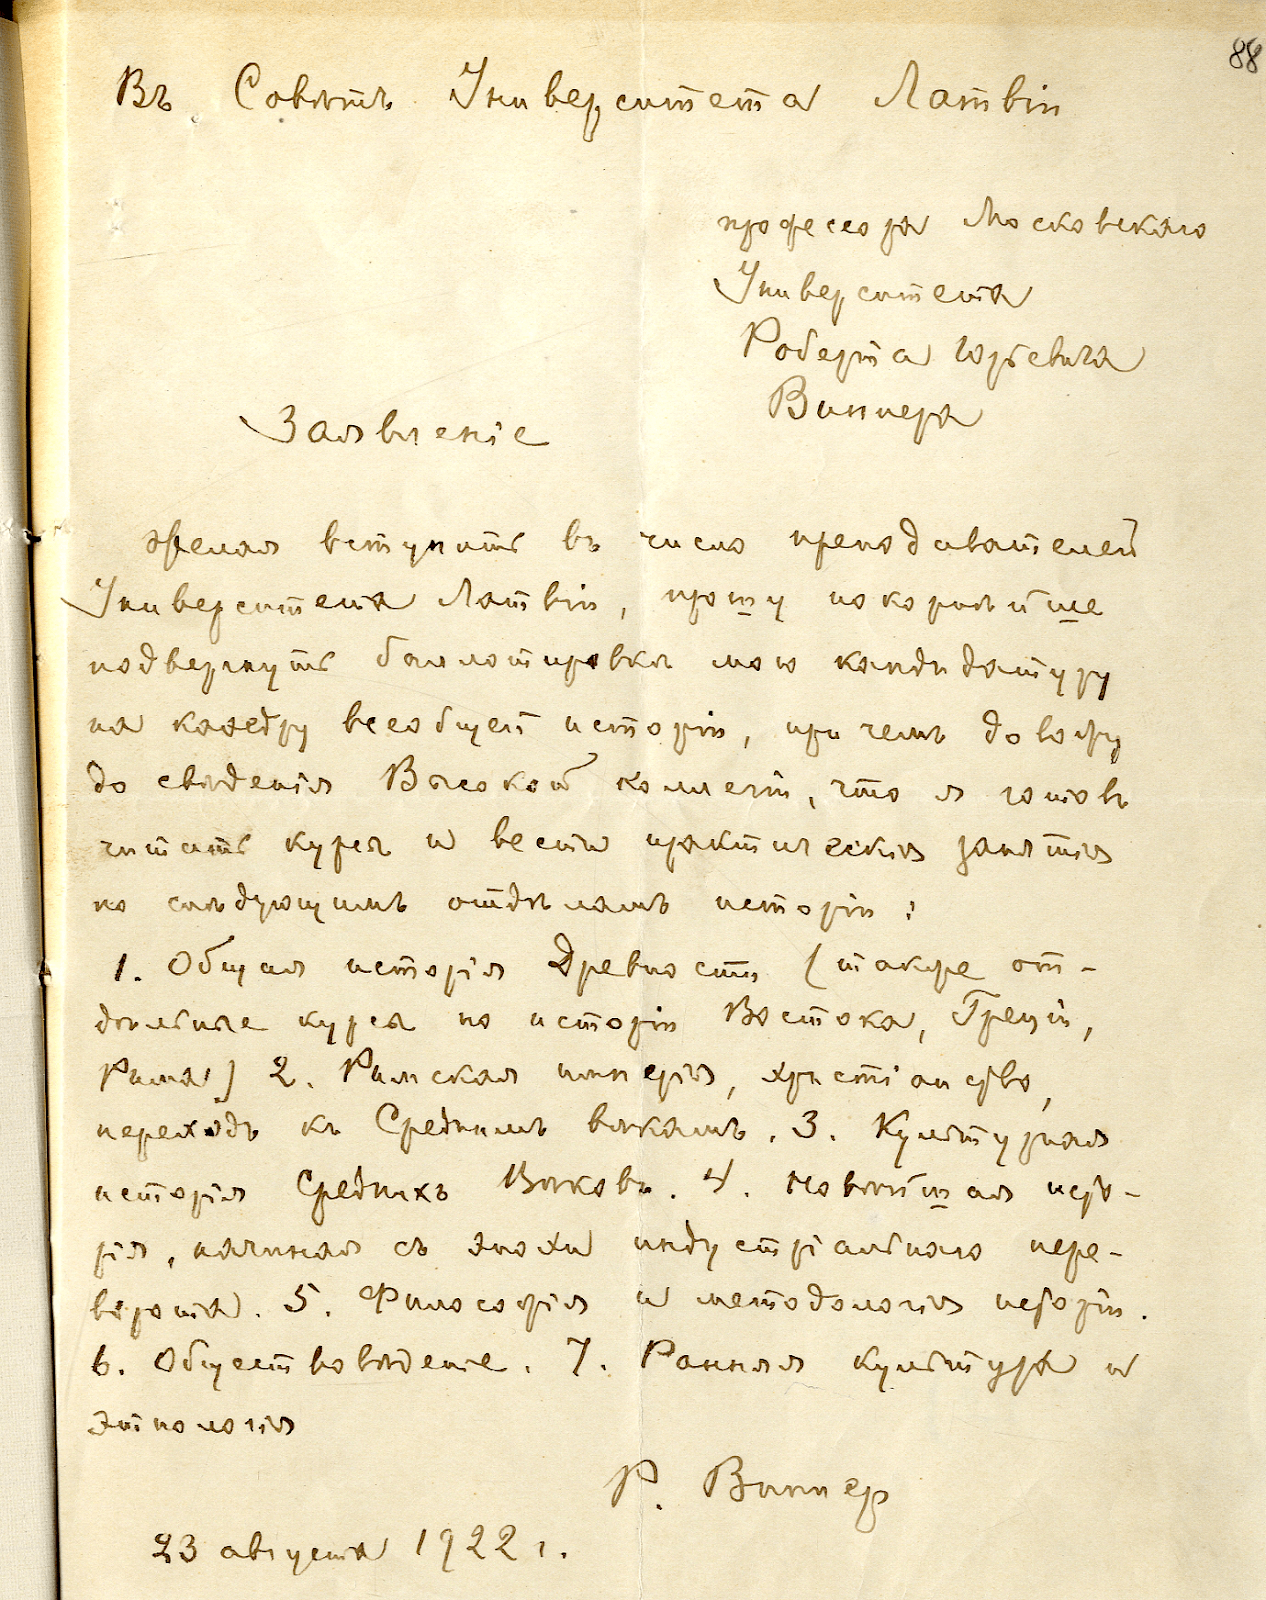 88
Въ Совѣтъ Университета Латвіи
профессора Московскаго
Университета
Роберта Юрьевича
Виппера
Заявленіе
Желая вступить въ число преподавателей
Университета Латвіи, прошу покорнѣйше
подвергнуть баллотировкѣ мою кандидатуру
на каѳедру всеобщей исторіи, при чемъ довожу
до свѣдѣнія Высокой коллегіи, что я готовъ
читать курсы и вести практическія занятія
по слѣдующимъ отдѣламъ исторіи:
1. Общая исторія Древности (также от-
дѣльные курсы по исторіи Востока, Греціи,
Рима) 2. Римская имперія, христіанство,
переходъ къ Среднимъ вѣкамъ. 3. Культурная
исторія Среднихъ Вѣковъ. 4. Новѣйшая исто-
рія, начиная съ эпохи индустріальнаго пере-
ворота. 5. Философія и методологія исторіи.
6. Обществовѣденіе. 7. Ранняя культура и
этнологія
Р. Виппер
23 августа 1922 г.